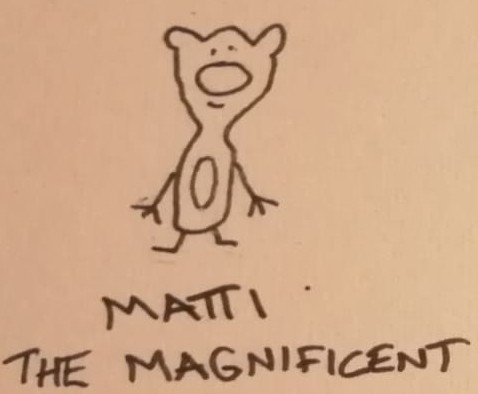 MATTI
THE MAGNIFICENT